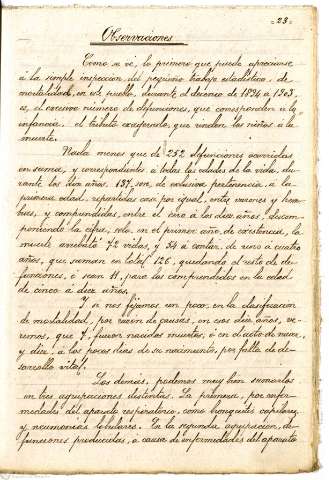 = 23 =
Observaciones
Como se vé, lo primero que puede apreciarse
á la simple inspeccion del pequeño trabajo estadístico, de
mortalidad, en este pueblo, durante el decenio de 1894 á 1903,
es, el excesivo número de defunciones, que corresponden á la
infancia. el tributo exagerado, que rinden los niños á la
muerte.
Nada menos que de 252 defunciones ocurridas
en suma, y correspondientes á todas las edades de la vida, du-
rante los diez años, 137, son, de exclusiva pertenencia, á la
primera edad, repartidas casi por igual, entre varones y hem-
bras, y comprendidas, entre el cero á los diez años, descom-
poniendo la cifra, solo, en el primer año, de existencia, la
muerte arrebató 72 vidas, y 54 á contar, de uno á cuatro
años, que suman en total 126, quedando el resto de de-
funciones, ó sean 11, para las comprendidas en la edad
de cinco á diez años.
Y si nos fijamos un poco, en la clasificacion
de mortalidad, por razón de causas, en esos diez años, ve-
remos, que 7, fueron nacidos muertos, ó en el acto de nacer,
y diez, á los pocos dias de su nacimiento, por falta de de-
sarrollo vital.
Los demás, podemos muy bien sumarlos
en tres agrupaciones distintas. La primera, por enfer-
medades del aparato respiratorio, como bronquitis capilares,
y neumonías lobulares. En la segunda agrupacion, de-
funciones producidas, á causa de enfermedades del aparato